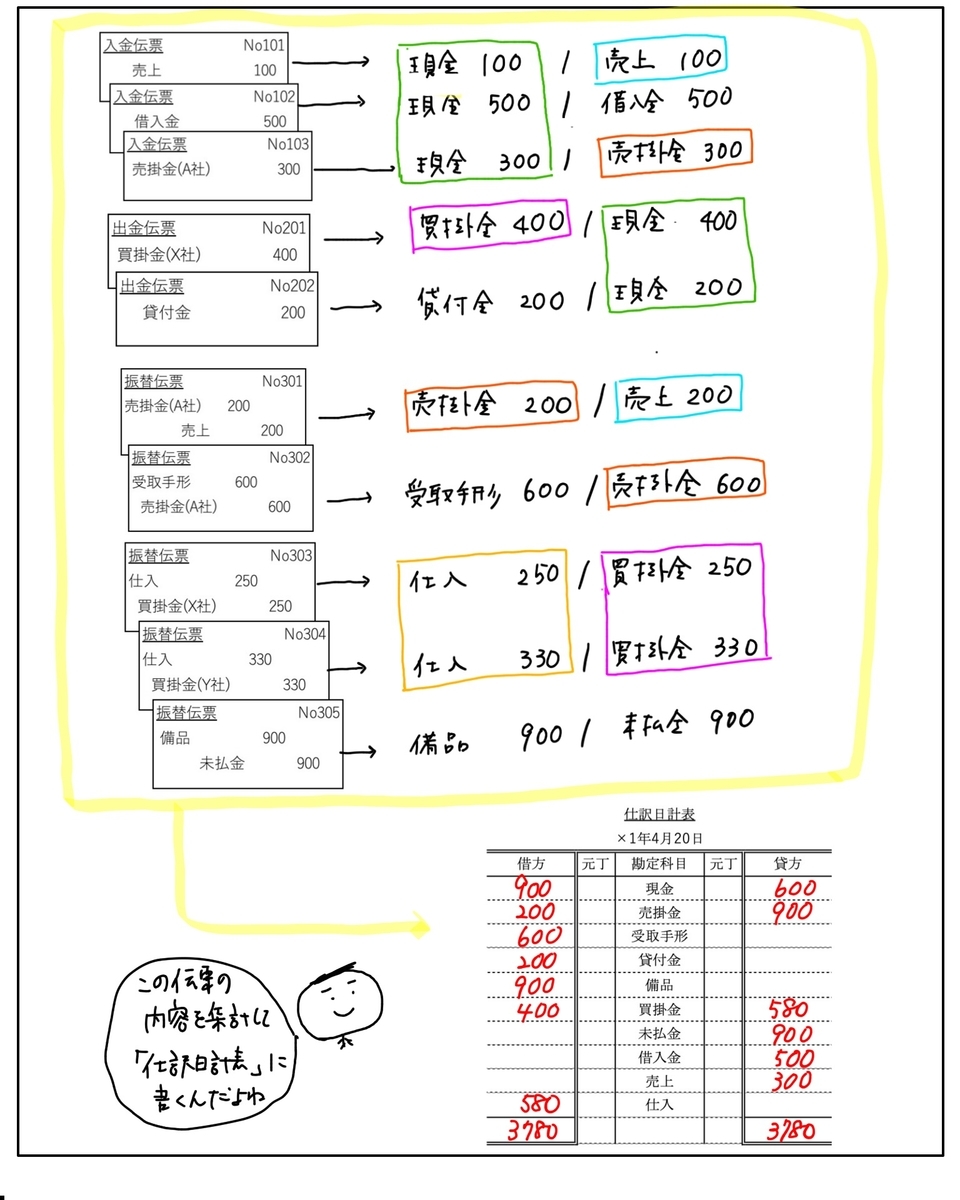 入金伝票 No101
売上 100
現金 100 / 売上 100
入金伝票 No102
借入金 500
現金 500 / 借入金 500
入金伝票 No103
売掛金(A社) 300
現金 300 / 売掛金 300
出金伝票 No201
買掛金(X社) 400
買掛金 400 / 現金 400
出金伝票 No202
貸付金 200
貸付金 200 / 現金 200
振替伝票 No301
売掛金(A社) 200
売上 200
売掛金 200 / 売上 200
振替伝票 No302
受取手形 600
売掛金(A社) 600
受取手形 600 / 売掛金 600
振替伝票 No303
仕入 250
買掛金(X社) 250
仕入 250 / 買掛金 250
振替伝票 No304
仕入 330
買掛金(Y社) 330
仕入 330 / 買掛金 330
振替伝票 No305
備品 900
未払金 900
備品 900 / 未払金 900
仕訳日計表
×1年4月20日
借方 元丁 勘定科目 元丁 貸方
900 現金 600
200 売掛金 900
600 受取手形
200 貸付金
900 備品
400 買掛金 580
未払金 900
借入金 500
売上 300
580 仕入
3780 3780
この伝票の
内容を集計して
「仕訳日計表」に
書くんだよね